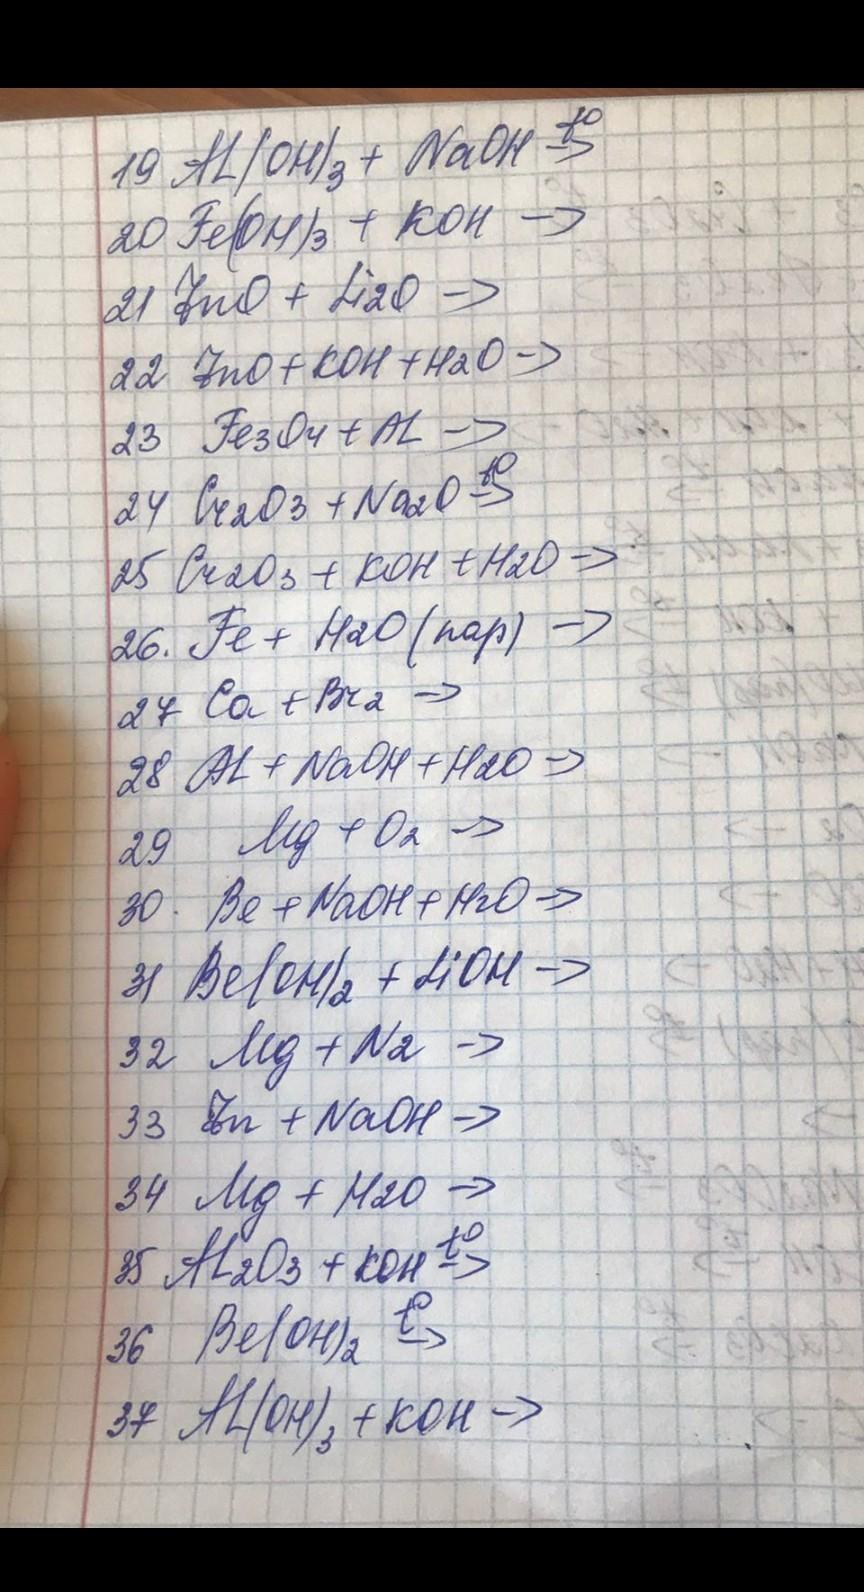 19 Al(OH)3 + NaOH t°→
20 Fe(OH)3 + KOH →
21 ZnO + Li2O →
22 ZnO + KOH + H2O →
23 Fe3O4 + Al →
24 Cr2O3 + Na2O t°→
25 Cr2O3 + KOH + H2O →
26. Fe + H2O (пар) →
27 Ca + Br2 →
28 Al + NaOH + H2O →
29 Mg + O2 →
30. Be + NaOH + H2O →
31 Be(OH)2 + LiOH →
32 Mg + N2 →
33 Zn + NaOH →
34 Mg + H2O →
35 Al2O3 + KOH t°→
36 Be(OH)2 t°→
37 Al(OH)3 + KOH →